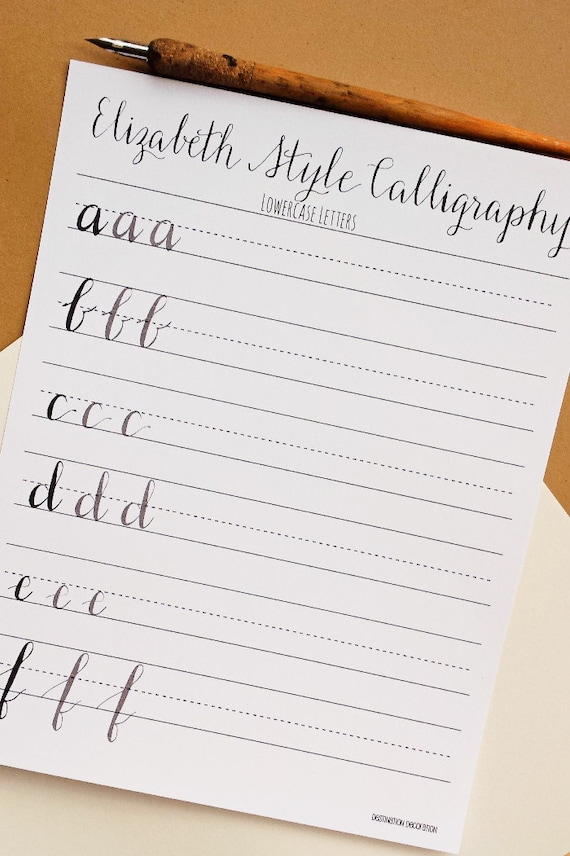 Elizabeth Style Calligraphy
Lowercase Letters
a a a
b b b
c c c
d d d
e e e
f f f
Destination Decoration